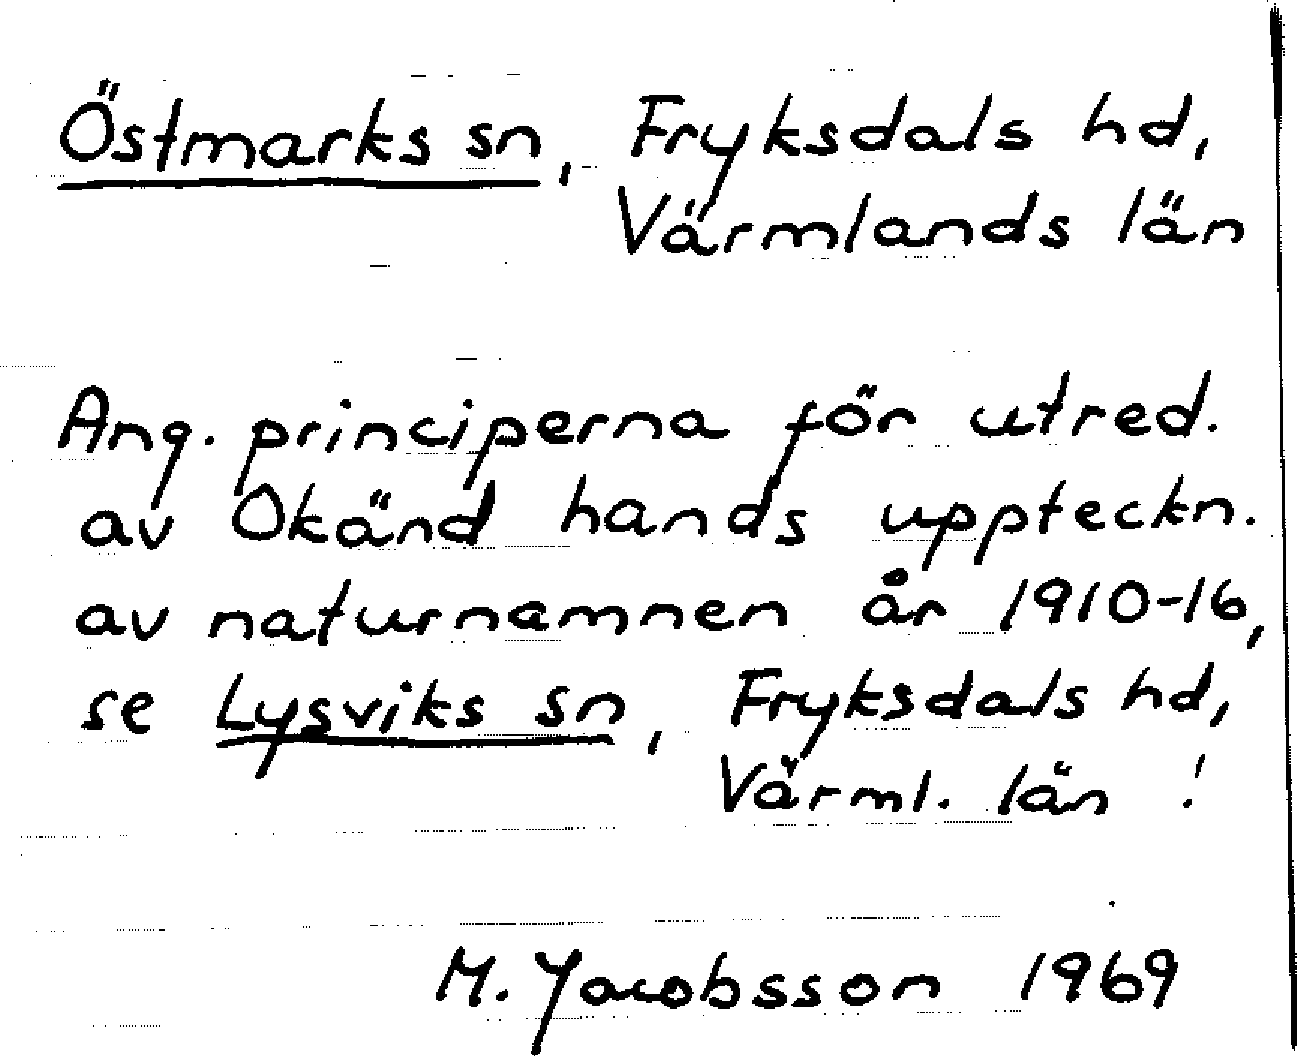 Östmarks sn, Fryksdals hd,
Värmlands län
Ang. principerna för utred.
av Okänd hands uppteckn.
av naturnamnen år 1910-16,
se Lysviks sn, Fryksdals hd,
Värml. län !
M. Jacobsson 1969